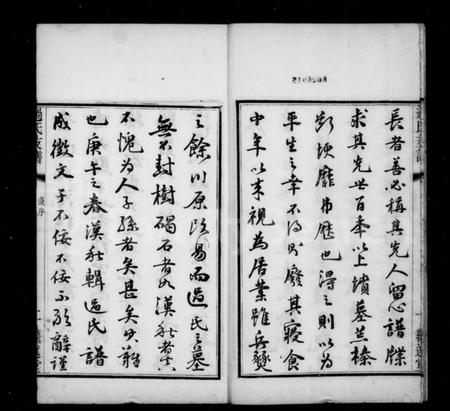 長者善必稱其先人留心譜牒
求其先世百年以上墳墓荒榛
斷埂靡弗歷也得之則以為
平生之幸不得則廢其寢食
中年以來視為居業雖兵燹
之餘川原改易而過氏之墓
無不封樹碣石者如漢
不愧為人子孫者矣甚矣其難
也庚午之春漢 輯過氏譜
成徵文予不佞不佞不敢辭謹
過氏支譜